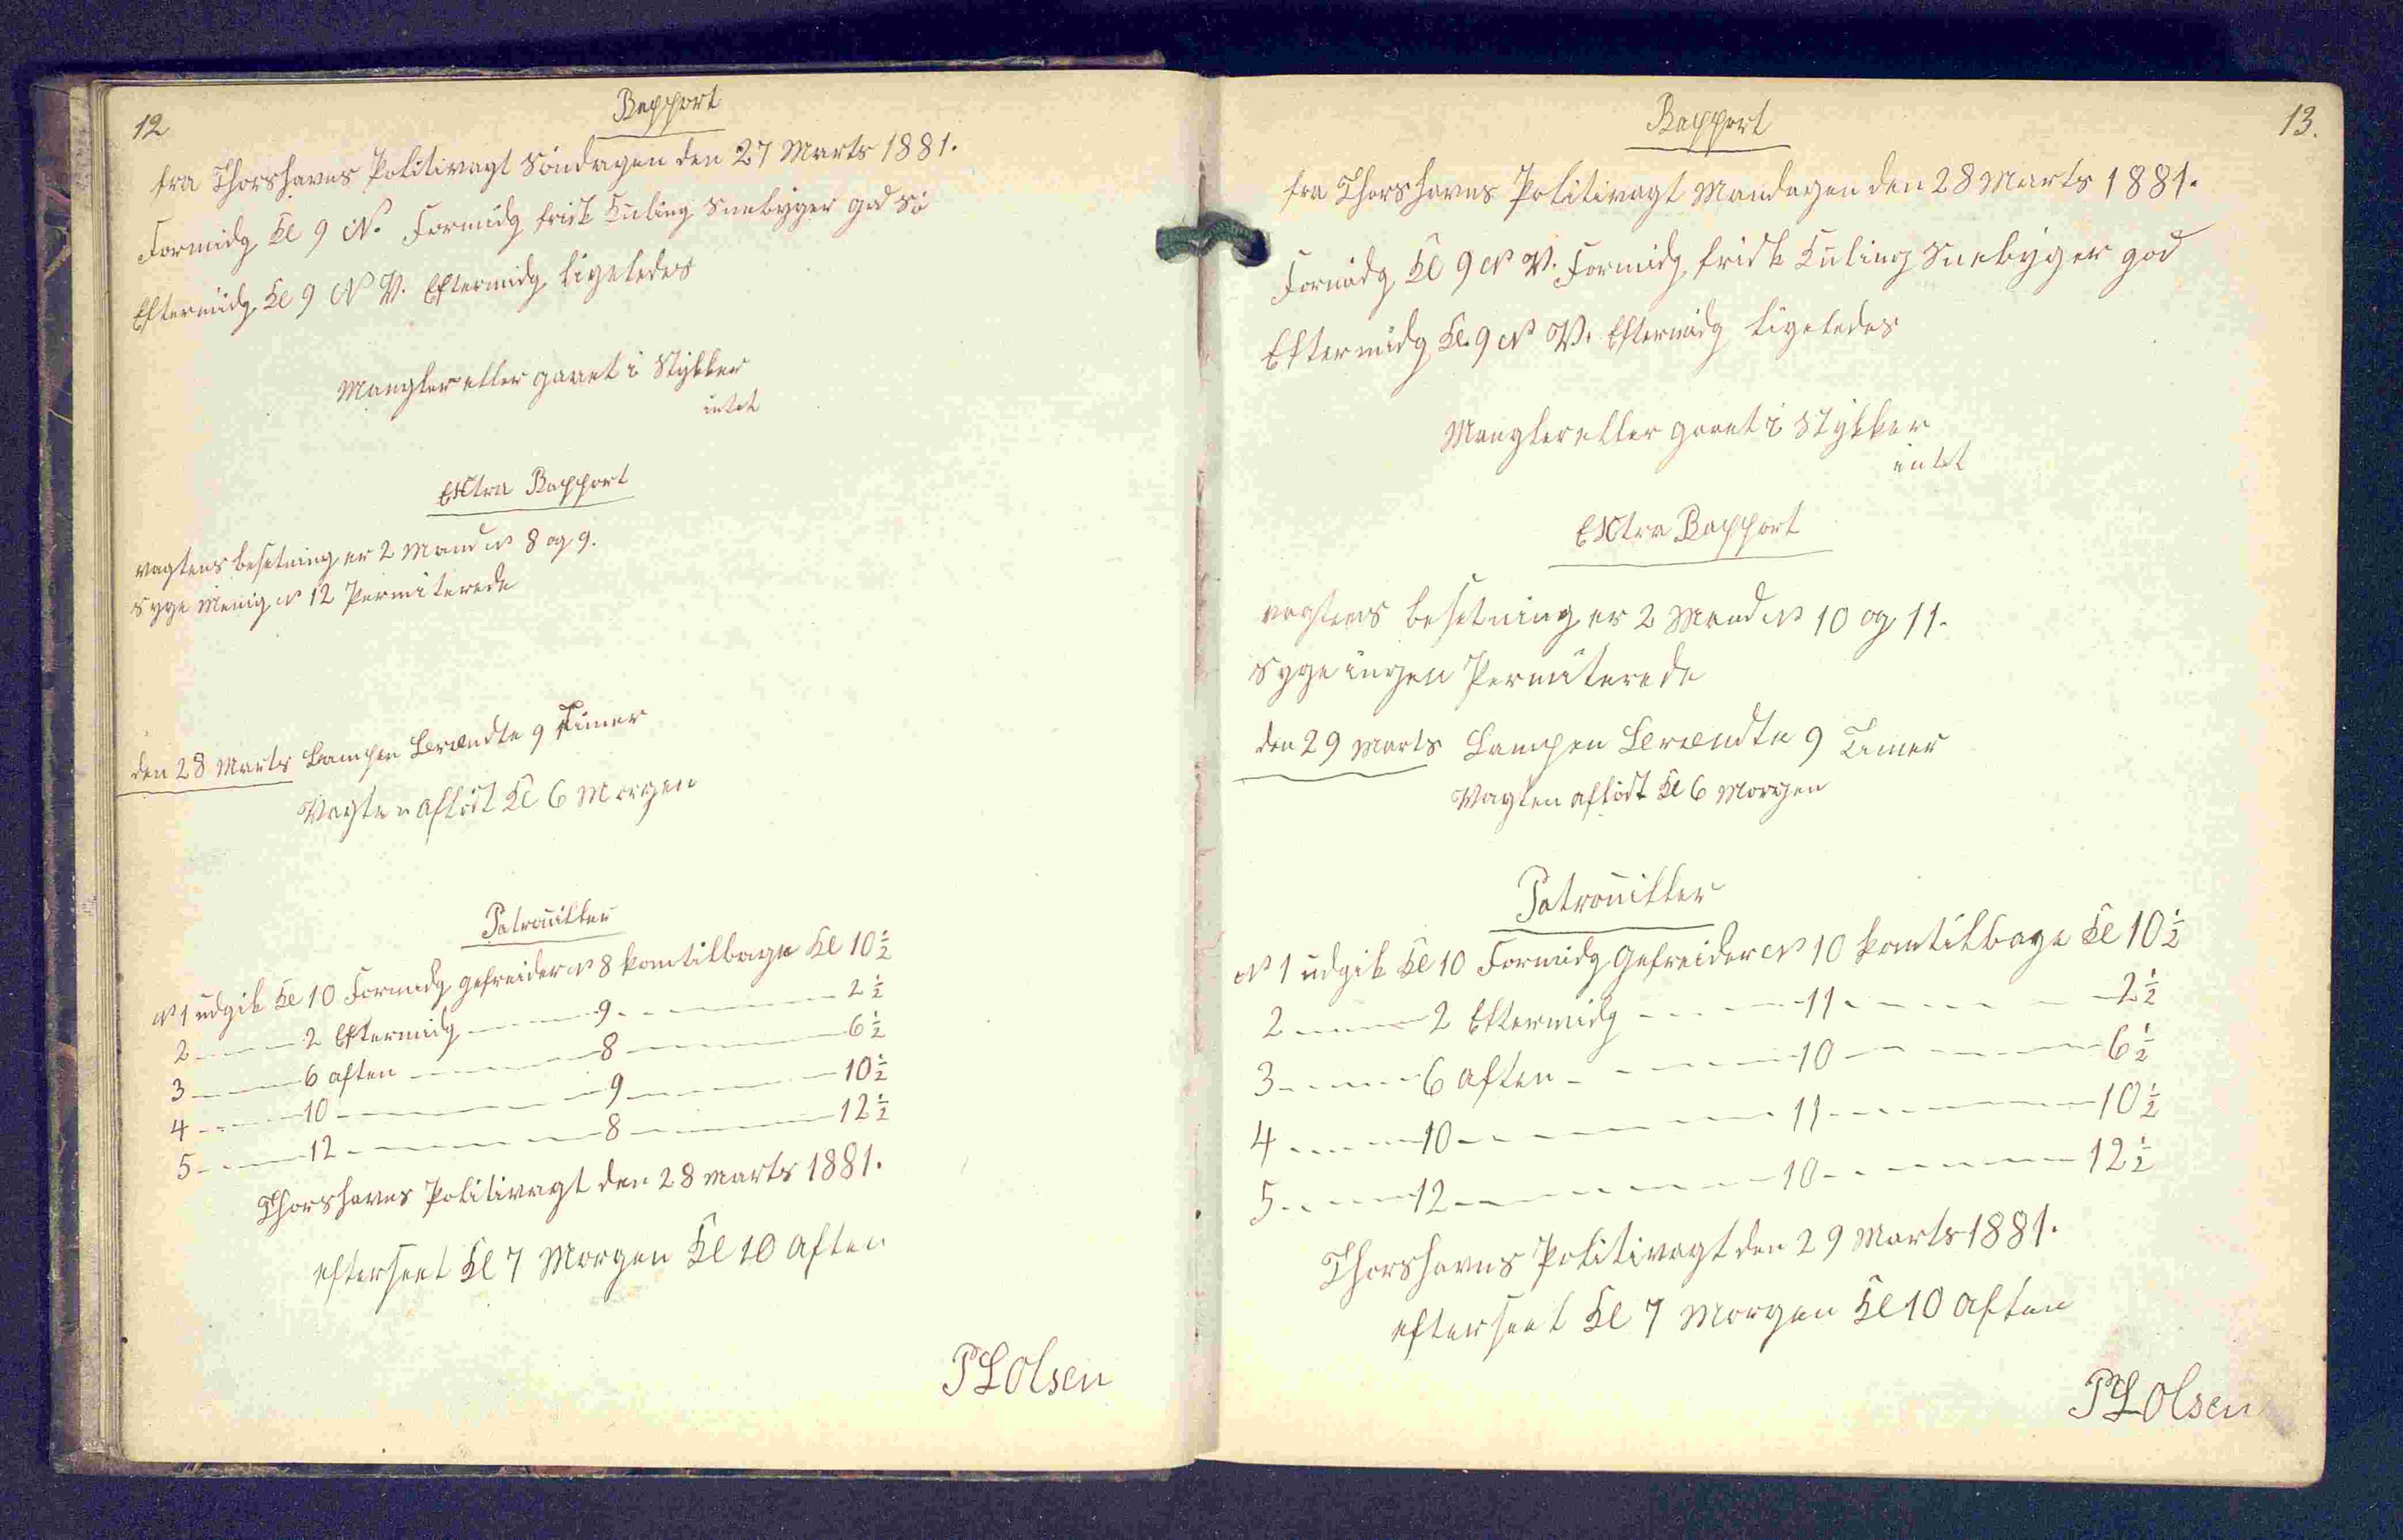 12
Rapport
fra Thorshavns Politivagt Söndagen den 27 Marts 1881.
Formidg Kl 9 N. Formidg frisk Kuling Snebyger god Sö
Eftermidg Kl 9 N V. Eftermidg ligeledes
Mangler eller gaaet i Stykker
intet
Extra Rapport
vagtens besetning er 2 Mand No 8 og 9.
Syge Menig No 12 Permiterede
den 28 Marts Lampen Brændte 9 Timer
Vagten aflöst Kl 6 Morgen
Patrouiller
No 1 udgik Kl 10 Formidg gefreider No 8 kom tilbage Kl 10 1/2
2 — 2 Eftermidg — 9 — 2 1/2
3 — 6 aften — 8 — 6 1/2
4 — 10 — 9 — 10 1/2
5 — 12 — 8 — 12 1/2
Thorshavns Politivagt den 28 marts 1881.
efterseet Kl 7 Morgen Kl 10 Aften
P L Olsen
13.
Rapport
fra Thorshavns Politivagt Mandagen den 28 Marts 1881.
Formidg Kl 9 N V. Formidg frisk Kuling Snebyger god
Eftermidg Kl. 9 N V. Eftermidg ligeledes
Mangler eller gaaet i Stykker
intet
Extra Rapport
vagtens besetning er 2 Mand No 10 og 11.
Syge ingen Permiterede
den 29 Marts Lampen Brændte 9 Timer
Vagten aflöst Kl 6 Morgen
Patrouiller
No 1 udgik Kl 10 Formidg Gefreider No 10 kom tilbage Kl 10 1/2
2 — 2 Eftermidg — 11 — 2 1/2
3 — 6 Aften — 10 — 6 1/2
4 — 10 — 11 — 10 1/2
5 — 12 — 10 — 12 1/2
Thorshavns Politivagt den 29 Marts 1881.
efterseet Kl 7 Morgen Kl 10 Aften
P L Olsen